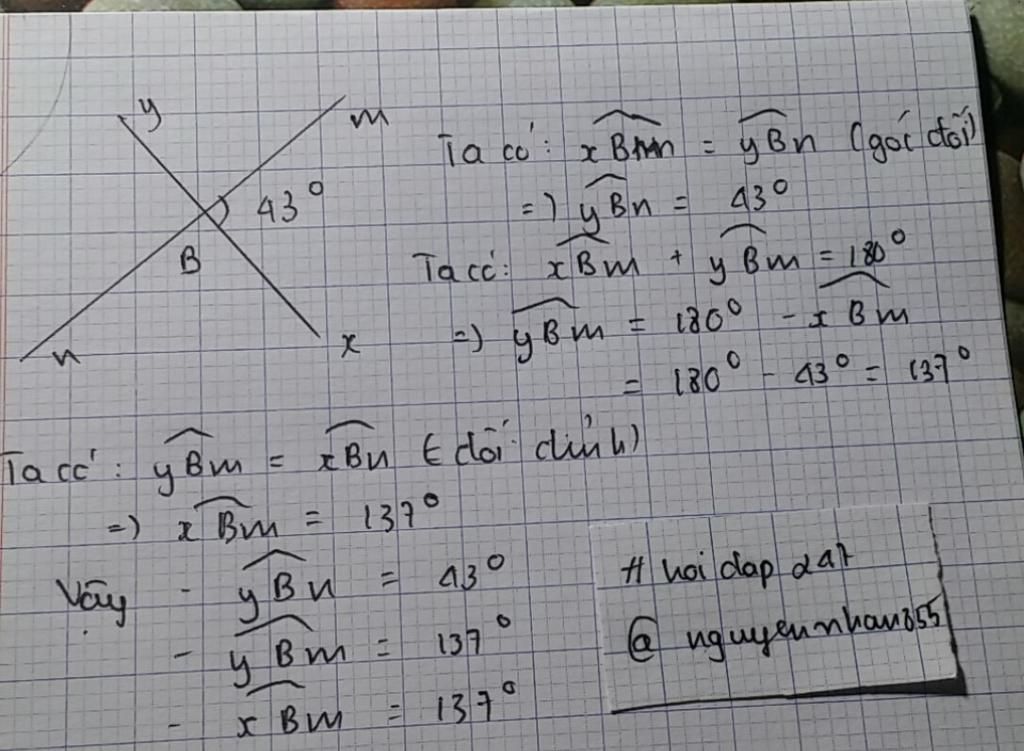 y
m
43°
B
n
x
Ta có: xBm = yBn (góc đối)
=) yBn = 43°
Ta có: xBm + yBm = 180°
=) yBm = 180° - xBm
= 180° - 43° = 137°
Ta có: yBm = xBn (đối đỉnh)
=) xBm = 137°
Vậy - yBn = 43°
- yBm = 137°
- xBm = 137°
# hoidap 247
@ nguyennhan855